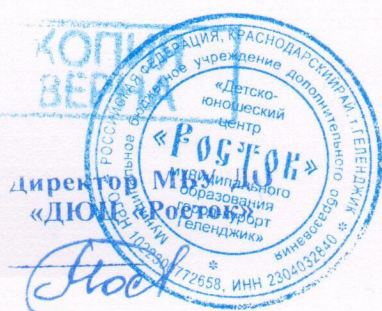 КОПИЯ
ВЕРНА
РОССИЙСКАЯ ФЕДЕРАЦИЯ, КРАСНОДАРСКИЙ КРАЙ, г. ГЕЛЕНДЖИК
Муниципальное бюджетное учреждение дополнительного образования
«Детско-
юношеский
центр
«Росток»
муниципального
образования
город-курорт
Геленджик»
ИНН 2304032840
Директор МБУ
«ДЮЦ «Росток»